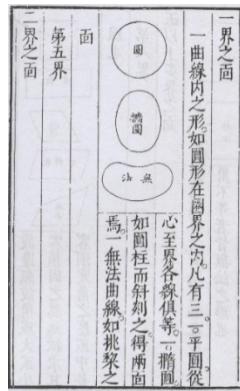 一界之面
一曲線內之形。如圓形在圜界之內。凡有三。一。平圓。從
心至界各線俱等。一。橢圓
如圓柱而斜刻之。得兩面
焉。一無法曲線。如桃梨之
圓
橢圓
無法
面
第五界
二界之面